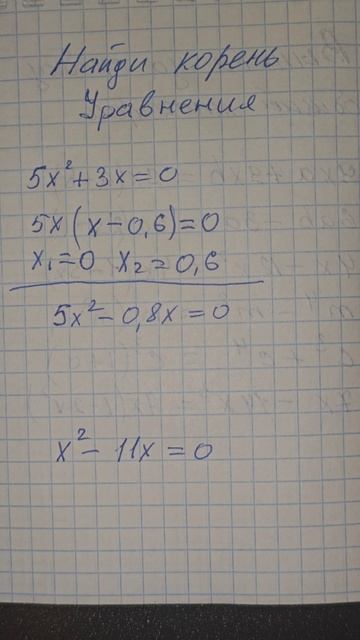 Найди корень
Уравнения
5x²+3x=0
5x(x-0,6)=0
x₁=0 x₂=0,6
5x²-0,8x=0
x²-11x=0